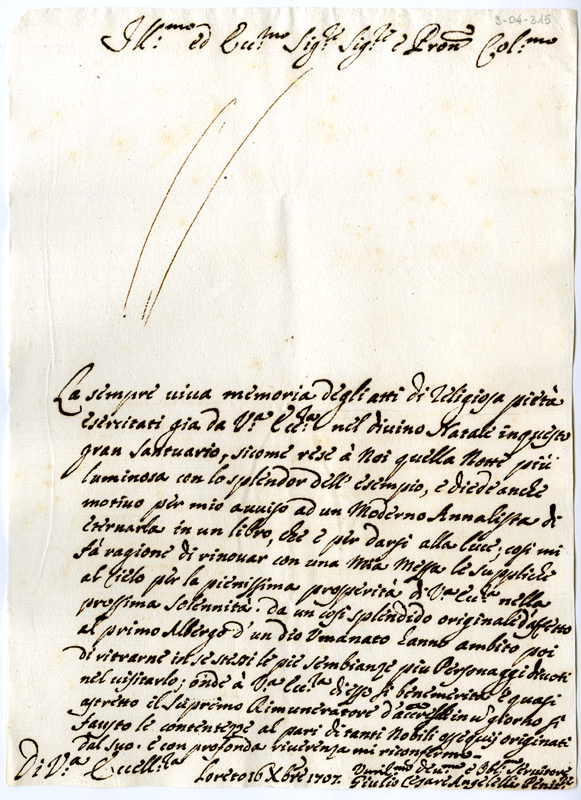 3-04-315
Ill.mo ed Ecc.mo Sig.re Sig.re e Pron Col.mo
La sempre viva memoria degli atti di religiosa pietà
esercitati già da V.a Ecc.za nel divino Natale in questo
gran Santuario, sicome rese à Noi quella Notte più
luminosa con lo splendor dell'esempio, e diede anche
motivo per mio avviso ad un Moderno Annalista di
eternarla in un libro, che è per darsi alla luce; così mi
fà ragione di rinovar con una mia Messa le suppliche
al Cielo per la pienissima prosperità di V.a Ecc.za nella
prossima Solennità. da un così splendido originale d'affetto
al primo Albergo d'un dio Umanato hanno ambito poi
di ritrarne in se stessi le pie sembianze più Personaggi divoti
nel visitarlo; onde à V.a Ecc.za si benemerita è quasi
astretto il supremo Rimuneratore d'accrescer in giorno sì
fausto le contentezze al pari di tanti Nobili ossequij originati
dal suo. e con profonda riverenza mi riconfermo
Di V.a Eccell.za
Loreto 16 Xbre 1707.
Umil.mo dev.mo e Obl.mo Servitore
Giulio Cesare Angelelli